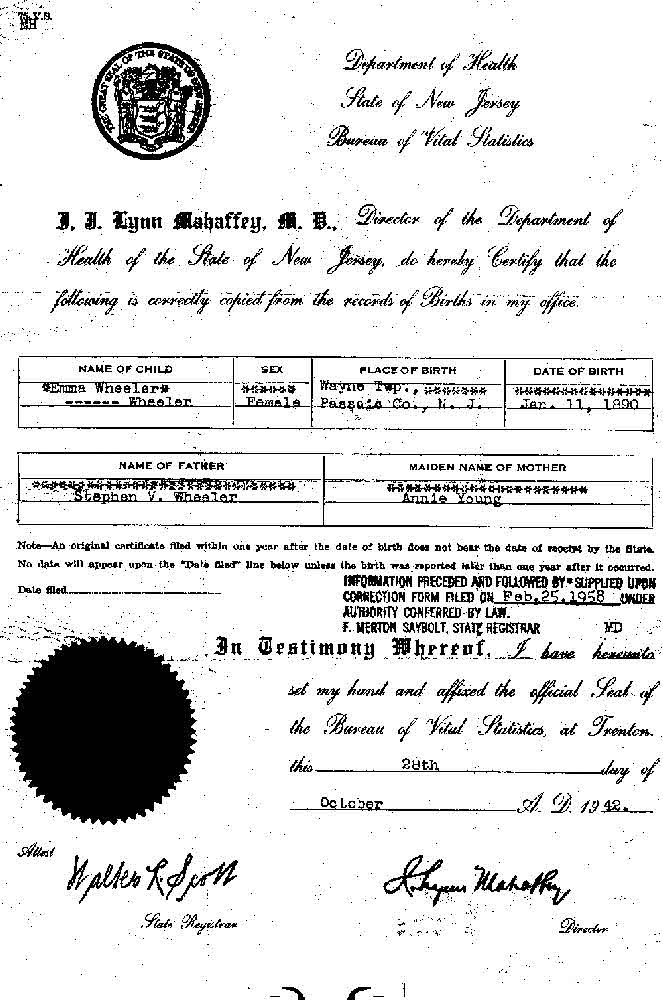 THE GREAT SEAL OF THE STATE OF NEW JERSEY
Department of Health
State of New Jersey
Bureau of Vital Statistics
I, J. Lynn Mahaffey, M. D., Director of the Department of
Health of the State of New Jersey, do hereby Certify that the
following is correctly copied from the records of Births in my office.
NAME OF CHILD SEX PLACE OF BIRTH DATE OF BIRTH
*Emma Wheeler* ****** Wayne Twp., ******* ****************
------ Wheeler Female Passaic Co., N. J. Jan. 11, 1890
NAME OF FATHER MAIDEN NAME OF MOTHER
Stephen V. Wheeler Annie Young
Note—An original certificate filed within one year after the date of birth does not bear the date of receipt by the State.
No date will appear upon the "Date filed" line below unless the birth was reported later than one year after it occurred.
Date filed
INFORMATION PRECEDED AND FOLLOWED BY * SUPPLIED UPON
CORRECTION FORM FILED ON Feb.25.1958 UNDER
AUTHORITY CONFERRED BY LAW.
F. MERTON SAYBOLT, STATE REGISTRAR MD
In Testimony Whereof, I have hereunto
set my hand and affixed the official Seal of
the Bureau of Vital Statistics, at Trenton.
this 28th day of
October A. D. 1942.
Attest
Walter R. Scott
J. Lynn Mahaffey
State Registrar
Director